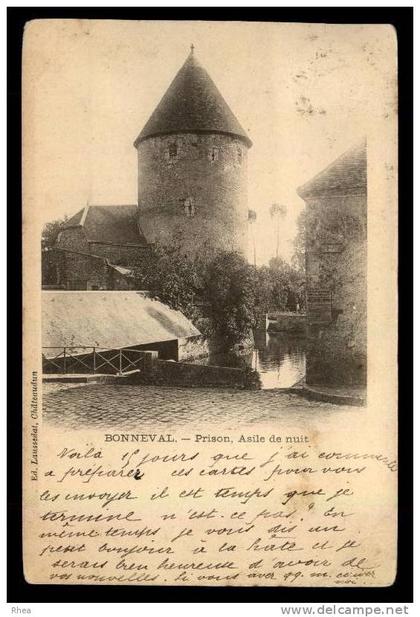 BONNEVAL. — Prison, Asile de nuit
Ed. Laussedat, Châteaudun
Voilà 15 jours que j'ai commencé
à préparer ces cartes pour vous
les envoyer il est temps que je
termine n'est-ce pas? En
même temps je vous dis un
petit bonjour à la hâte et je
serais bien heureuse d'avoir de
vos nouvelles. Si vous avez
Rhea
www.delcampe.net